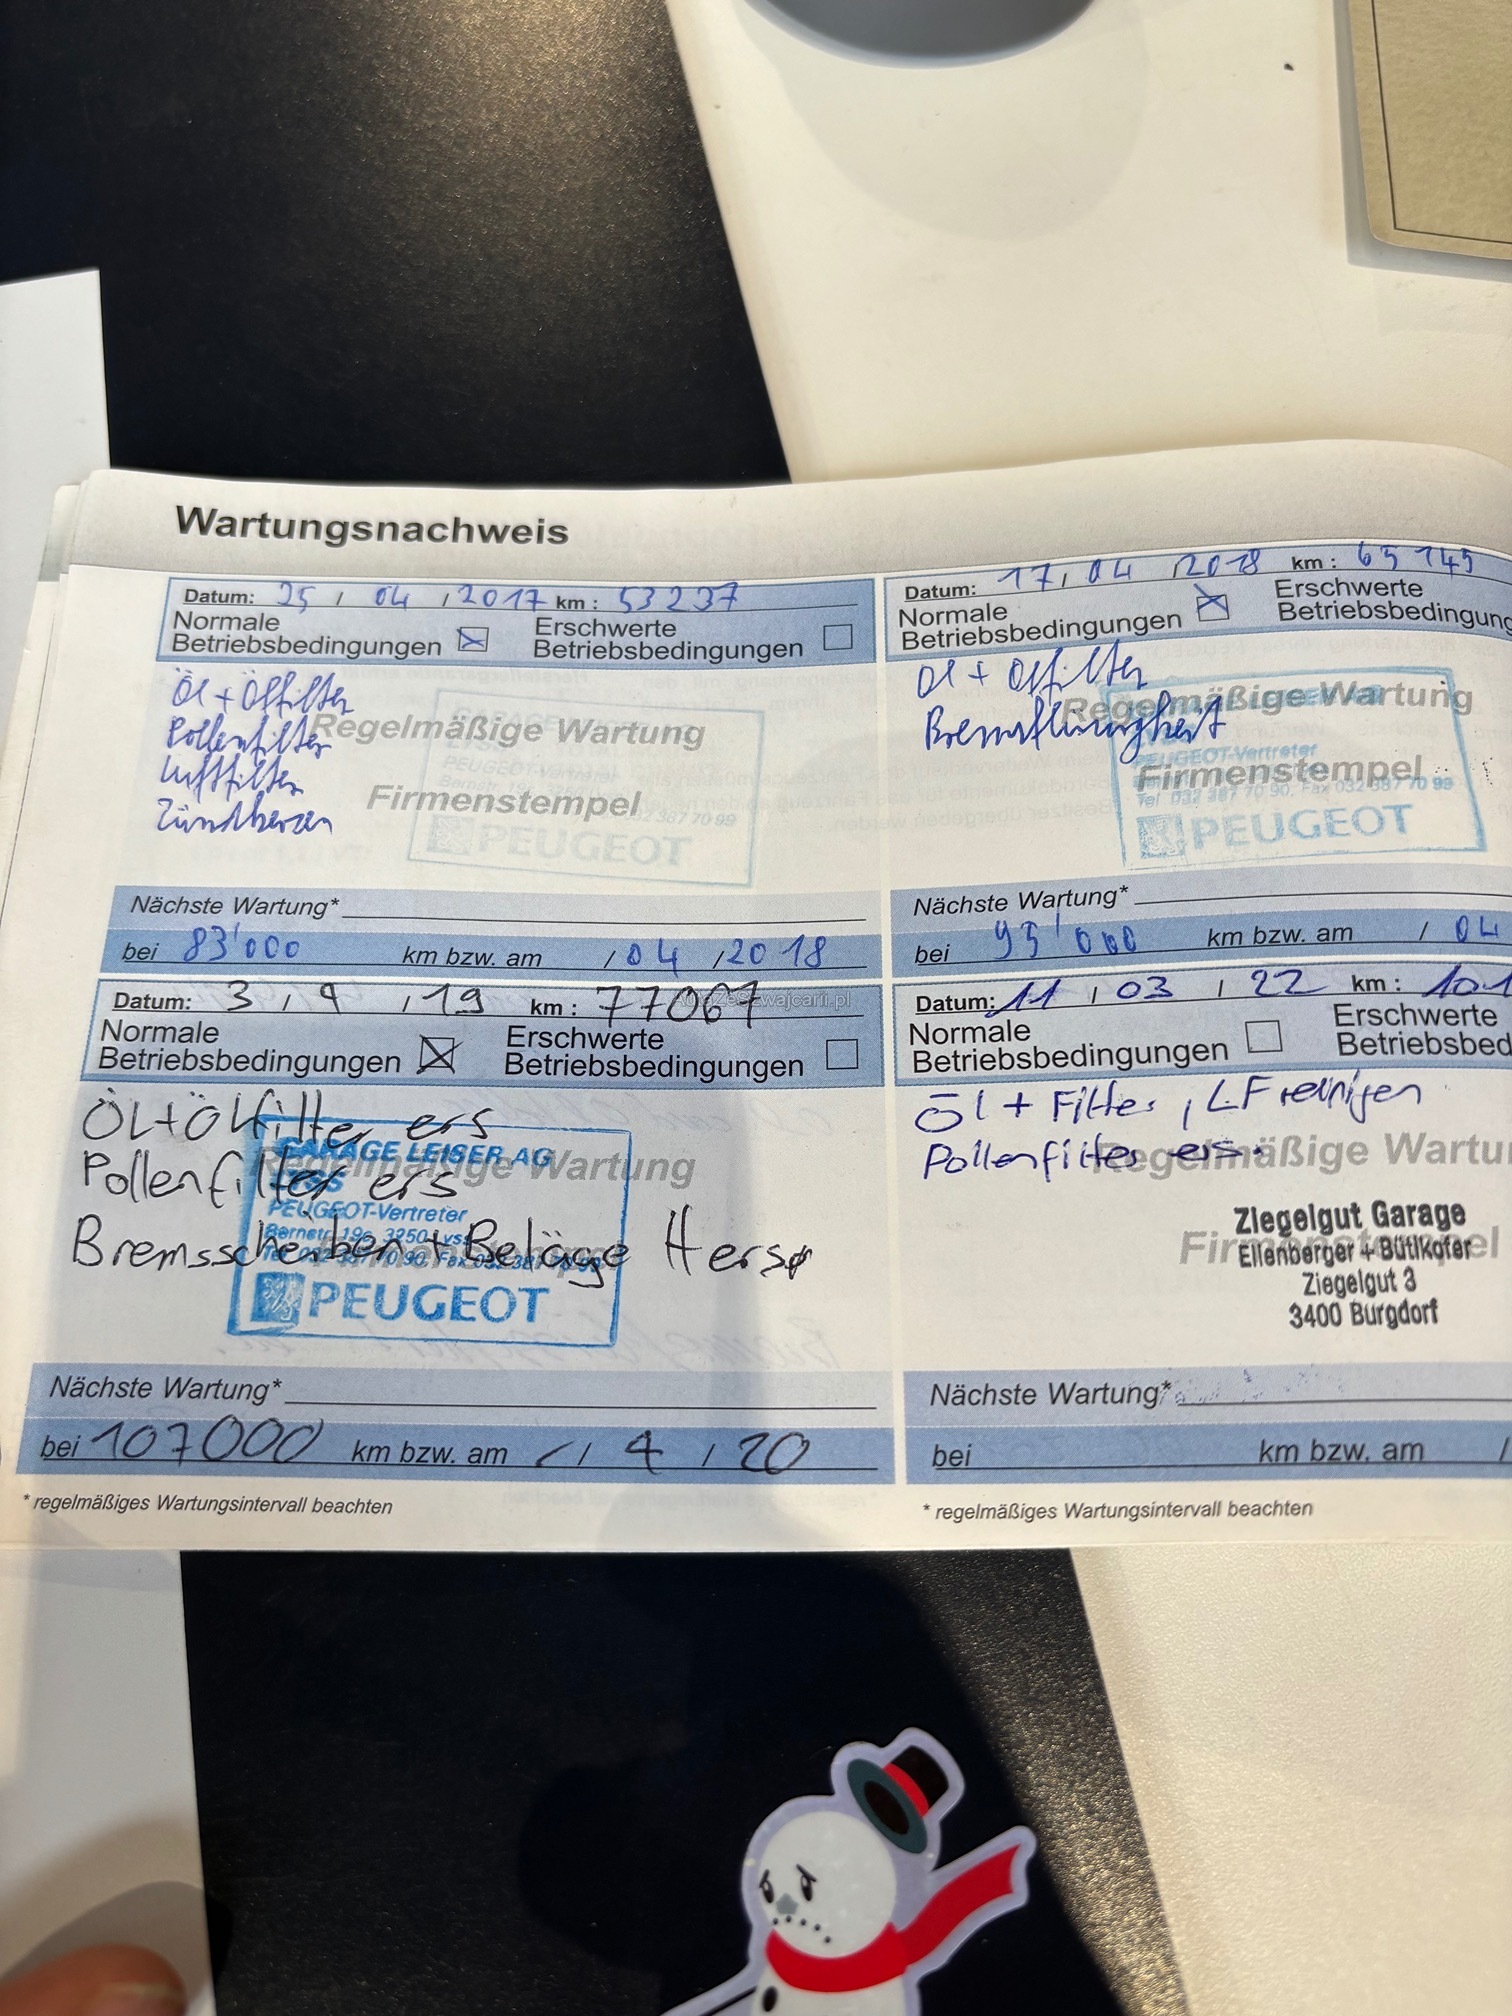 Wartungsnachweis
Datum: 25 / 04 / 2017 km : 53237
Normale
Betriebsbedingungen
Erschwerte
Betriebsbedingungen
Öl + Ölfilter
Pollenfilter
Luftfilter
Zündkerzen
Regelmäßige Wartung
Firmenstempel
PEUGEOT-Vertreter
387 70 99
PEUGEOT
Nächste Wartung*
bei 83'000 km bzw. am / 04 / 2018
Datum: 17 / 04 / 2018 km : 65 145
Normale
Betriebsbedingungen
Erschwerte
Öl + Ölfilter
Bremsflüssigkeit
Regelmäßige Wartung
PEUGEOT-Vertreter
Firmenstempel
Tel. 032 387 70 90, Fax 032 387 70 99
PEUGEOT
Nächste Wartung*
bei 95'000 km bzw. am / 04
Datum: 3 / 4 / 19 km : 77067
AutaZeSzwajcarii.pl
Normale
Betriebsbedingungen
Erschwerte
Betriebsbedingungen
Öl+Ölfilter ers
GARAGE LEISER AG
Pollenfilter ers
Regelmäßige Wartung
PEUGEOT-Vertreter
Bernstr. 19c, 3250 Lyss
Bremsscheiben + Beläge H ers
Firmenstempel
PEUGEOT
Nächste Wartung*
bei 107000 km bzw. am / 4 / 20
* regelmäßiges Wartungsintervall beachten
Datum: 11 / 03 / 22 km : 101
Normale
Betriebsbedingungen
Erschwerte
Öl + Filter, LF reinigen
Pollenfilter ers.
Regelmäßige
Ziegelgut Garage
Ellenberger + Bütikofer
Ziegelgut 3
3400 Burgdorf
Nächste Wartung*
bei km bzw. am /
* regelmäßiges Wartungsintervall beachten